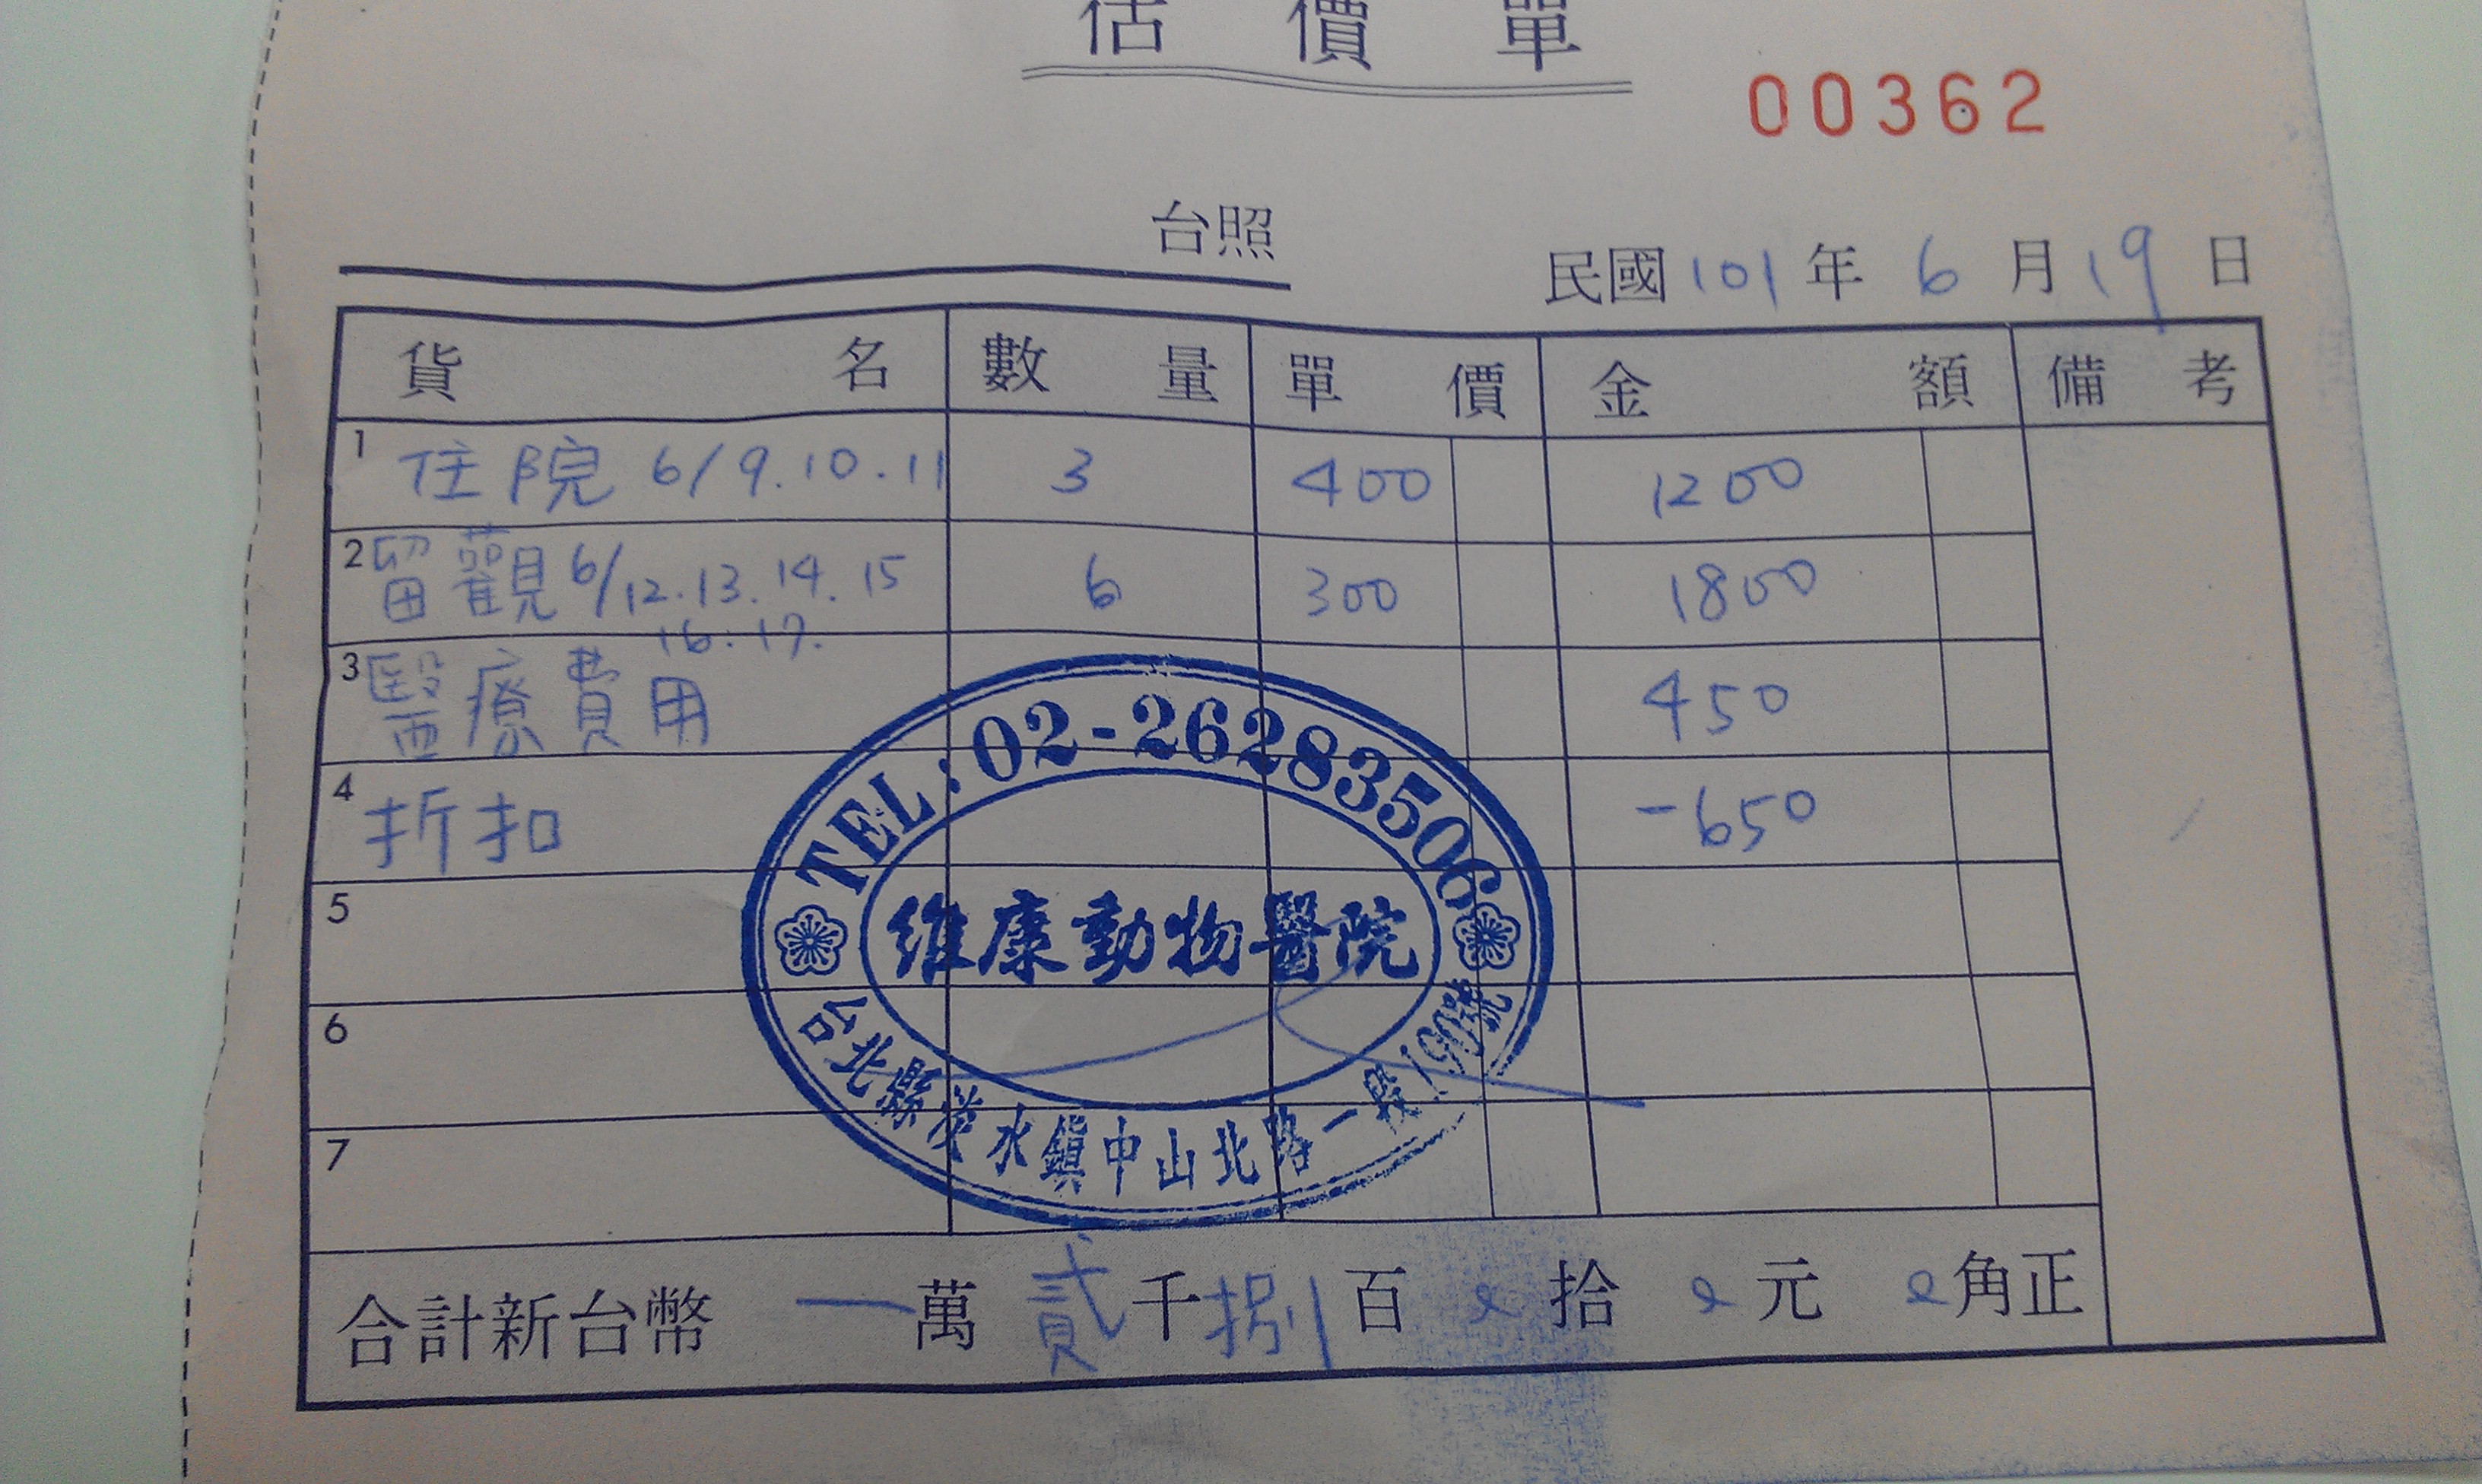 估價單
00362
台照
民國101年6月19日
貨名 數量 單價 金額 備考
1 住院 6/9.10.11 3 400 1200
2 留觀 6/12.13.14.15 6 300 1800
16.17.
3 醫療費用 450
4 折扣 -650
5
6
7
TEL:02-26283506
維康動物醫院
台北縣淡水鎮中山北路一段190號
合計新台幣 一萬貳千捌百 拾 元 角正